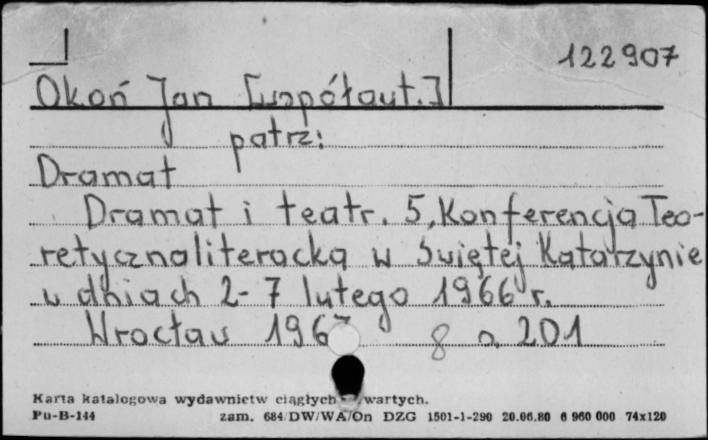 122907
Okoń Jan [współaut.]
patrz:
Dramat
Dramat i teatr. 5, Konferencja Teo-
retycznoliteracka w Świętej Katarzynie
w dniach 2-7 lutego 1966 r.
Wrocław 1967 8 s. 201
Karta katalogowa wydawnictw ciągłych wartych.
Pu-B-144 zam. 684/DW/WA/On DZG 1501-1-290 20.06.80 6 960 000 74x120